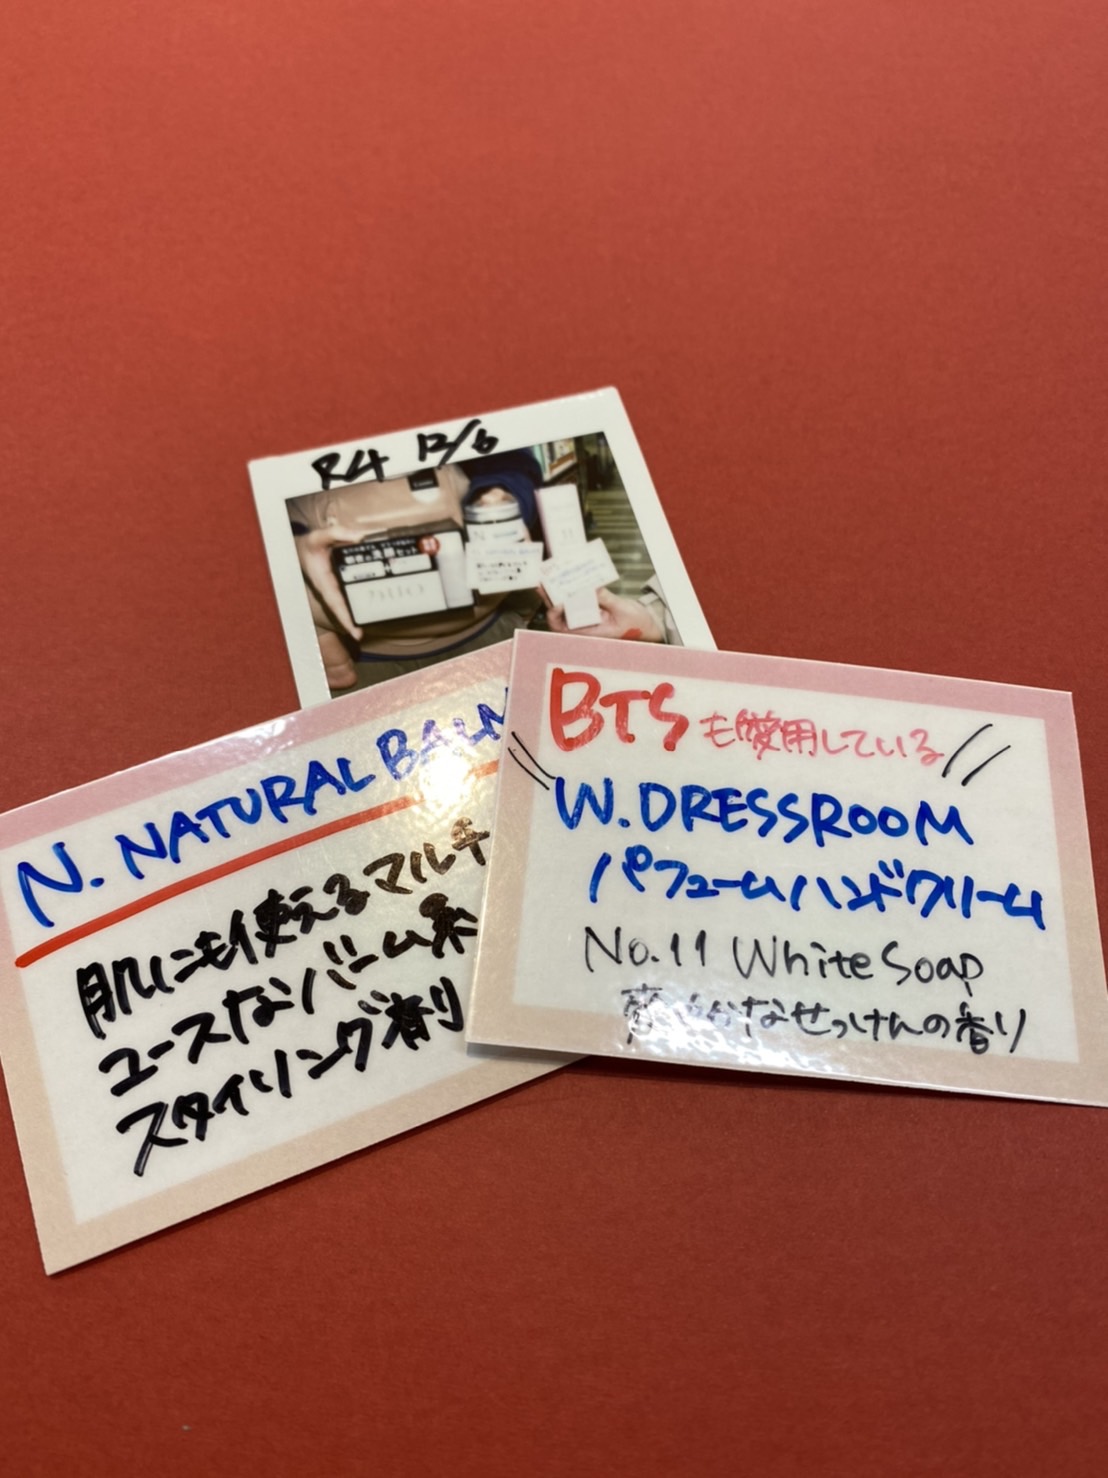 R4 12/6
N. NATURAL BALM
肌にも使えるマルチ
ユースなバーム系
スタイリング剤
BTSも愛用している
W.DRESSROOM
パフュームハンドクリーム
No.11 White Soap
爽やかなせっけんの香り